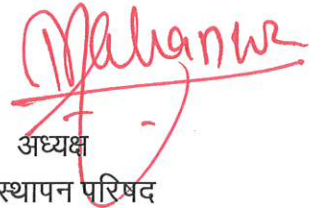 अध्यक्ष
स्थापन परिषद